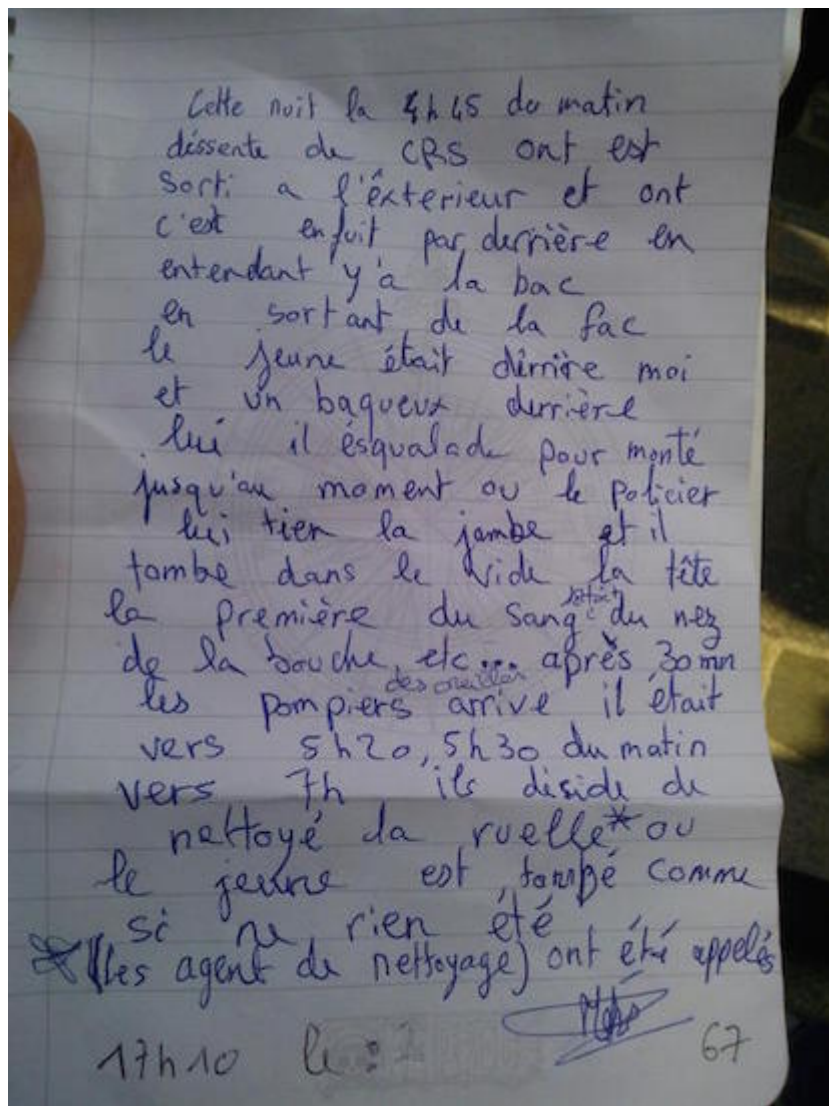 Cette nuit la 4h45 du matin
déssente de CRS ont est
sorti a l'éxterieur et ont
c'est enfuit par derrière en
entendant y'a la bac
en sortant de la fac
le jeune était dérrière moi
et un baqueux derrière
lui il ésqualade pour monté
jusqu'au moment ou le policier
lui tien la jambe et il
tombe dans le vide la tête
la première du sang du nez
de la bouche, etc... après 30 mn
des oreilles
les pompiers arrive il était
vers 5h20, 5h30 du matin
vers 7h ils déside de
nettoyé la ruelle* ou
le jeune est tombé comme
si ne rien été
* (les agent de nettoyage) ont été appelés
17h10 le : 67